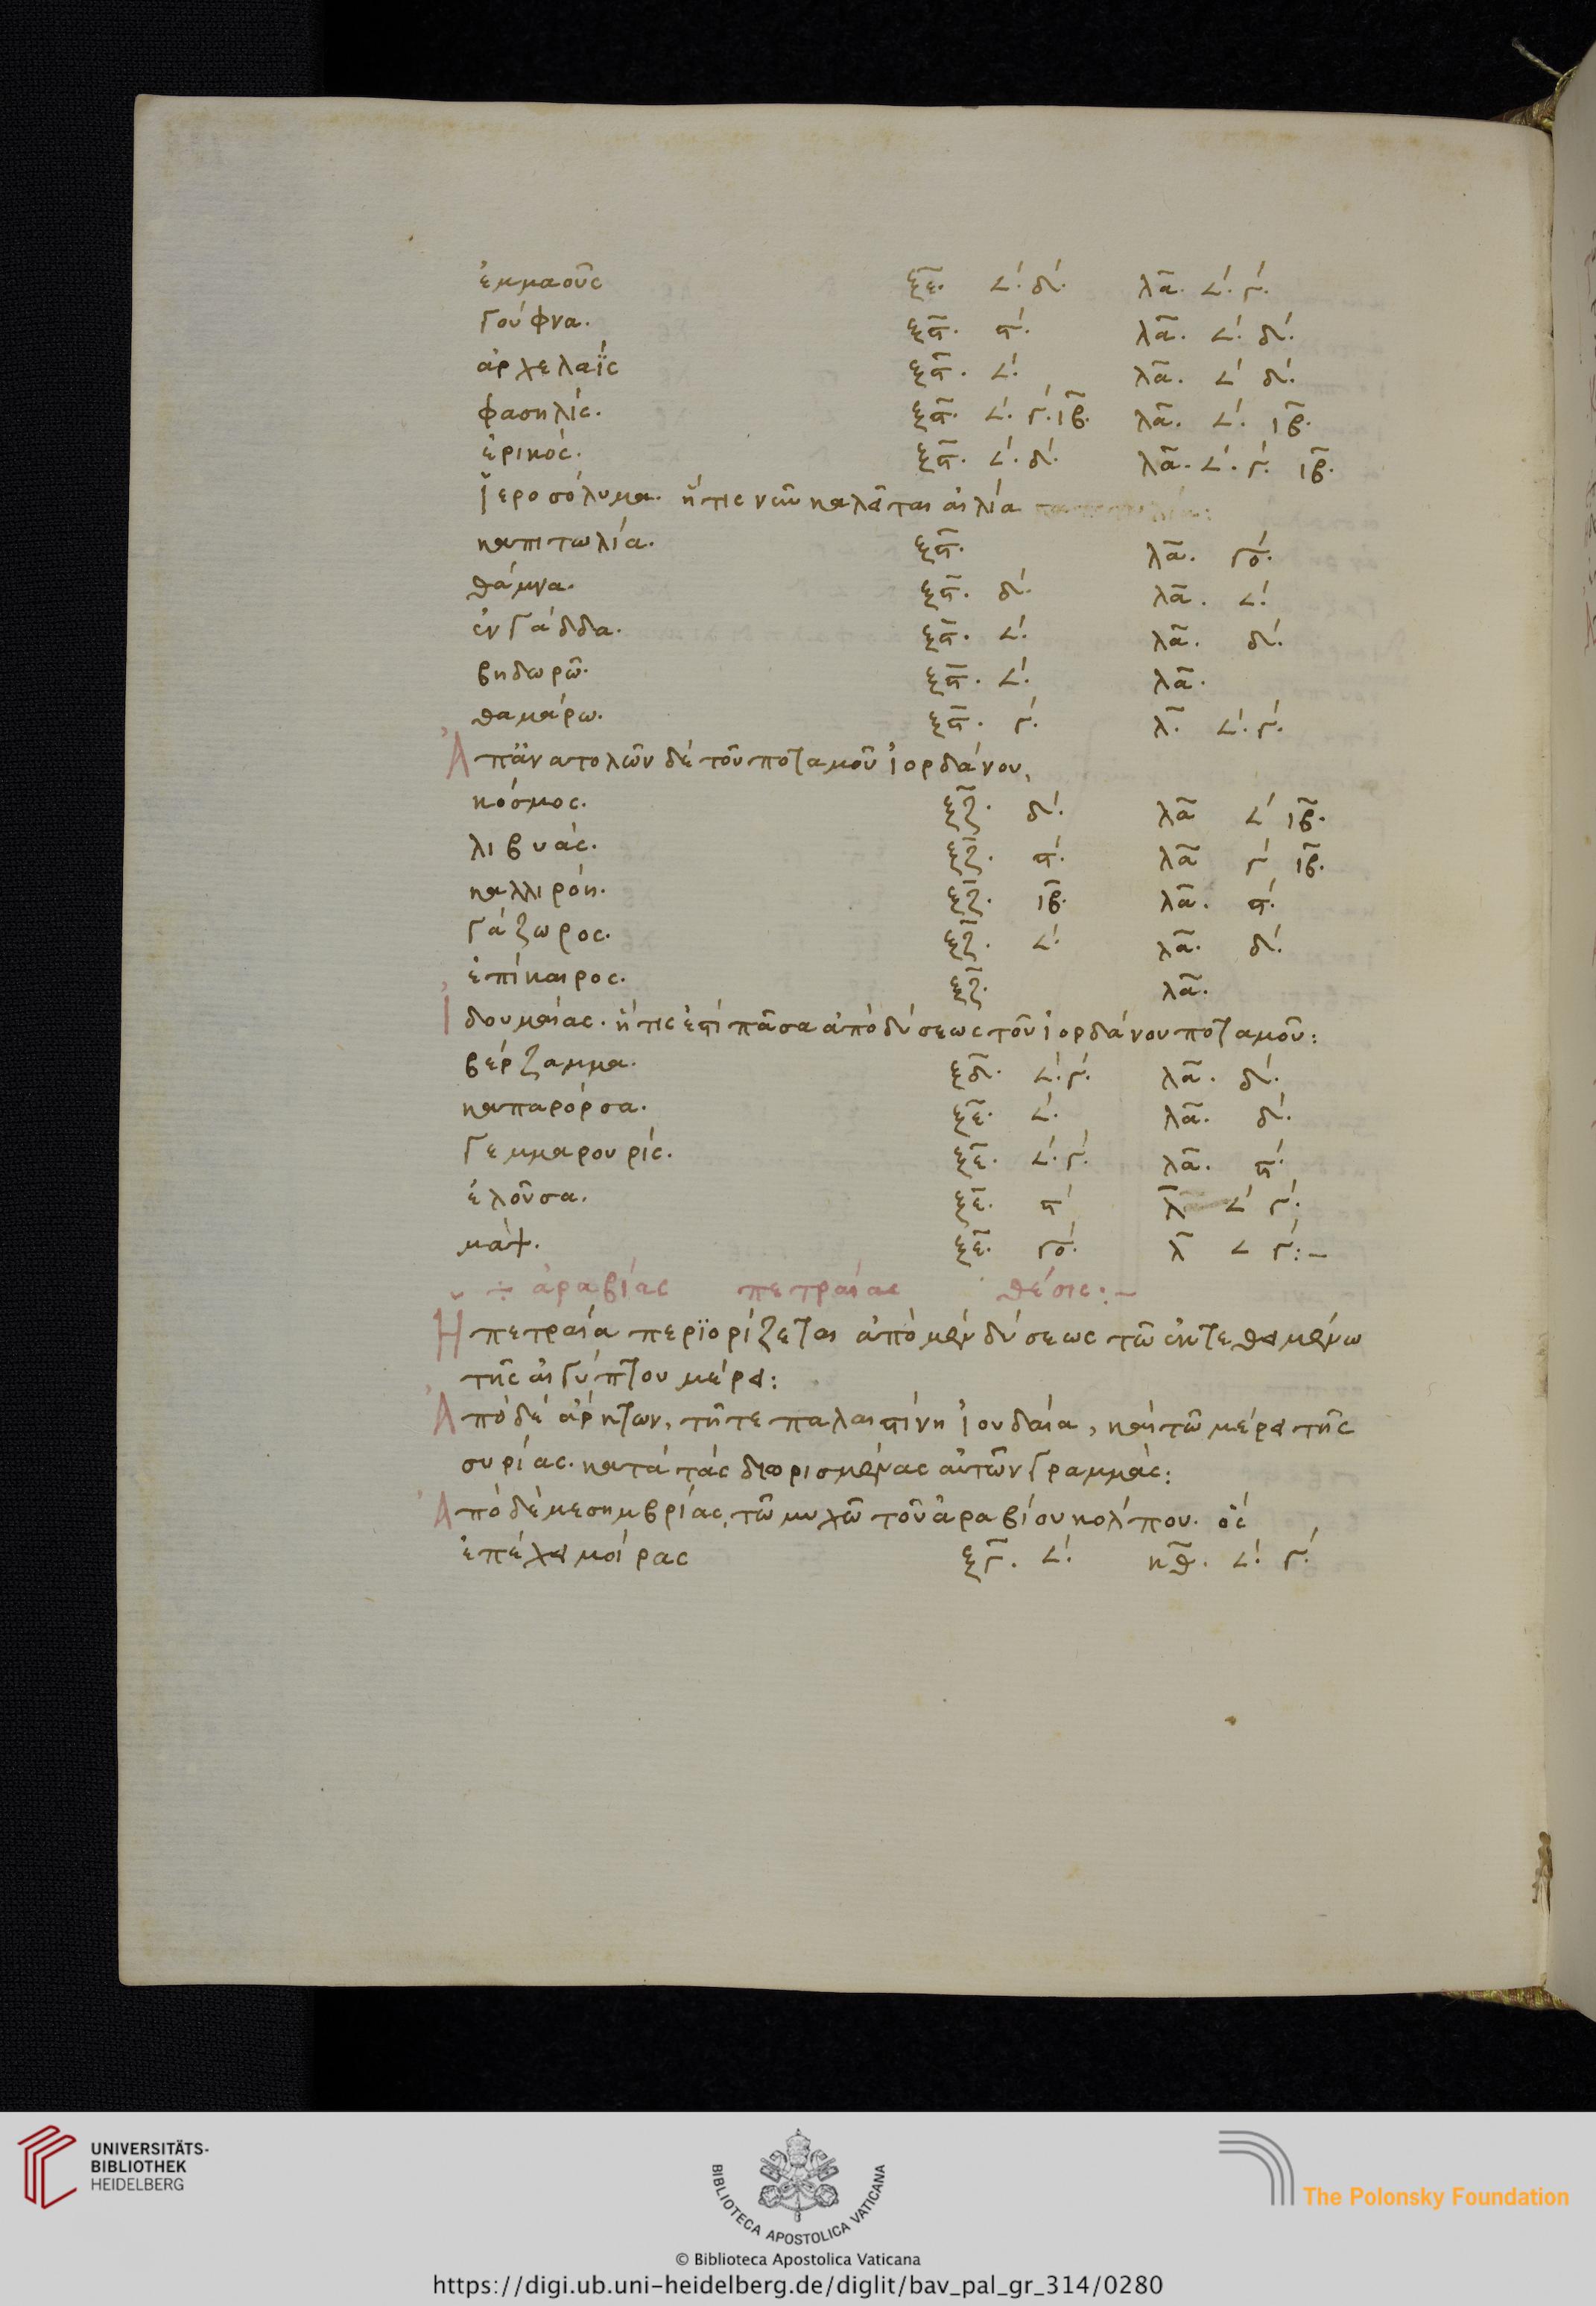 ἐμμαοῦς ξε̅. 𐅵΄. δ΄. λα̅. 𐅵΄. γ΄.
γούφνα. ξϛ̅. ϛ΄. λα̅. 𐅵΄. δ΄.
ἀρχελαΐς ξϛ̅. 𐅵΄. λα̅. 𐅵΄ δ΄.
φασηλίς. ξϛ̅. 𐅵΄. γ΄. ιβ̅. λα̅. 𐅵΄. ιβ̅.
ἐρικός. ξϛ̅. 𐅵΄. δ΄. λα̅. 𐅵΄. γ΄. ιβ̅.
Ἱεροσόλυμα. ἥτις νῦν καλεῖται αἰλία
καπιτωλία. ξϛ̅. λα̅. γο΄.
θάμνα. ξϛ̅. δ΄. λα̅. 𐅵΄.
ἐνγάδδα. ξϛ̅. 𐅵΄. λα̅. δ΄.
βηδωρῶ. ξϛ̅. 𐅵΄. λα̅.
θαμάρω. ξϛ̅. γ΄. λ̅. 𐅵΄. γ΄.
Ἀπἀνατολῶν δὲ τοῦ ποταμοῦ ἰορδάνου,
κόσμος. ξζ̅. δ΄. λα̅ 𐅵΄ ιβ̅.
λιβυάς. ξζ̅. ϛ΄. λα̅ γ΄ ιβ̅.
καλλιρόη. ξζ̅. ιβ̅. λα̅. ϛ΄.
γάζωρος. ξζ̅. 𐅵΄. λα̅. δ΄.
ἐπίκαιρος. ξζ̅. λα̅.
Ἰδουμαίας. ἥτις ἐστὶ πᾶσα ἀπὸ δύσεως τοῦ ἰορδάνου ποταμοῦ:
βέρζαμμα. ξδ̅. 𐅵΄. γ΄. λα̅. δ΄.
καπαρόρσα. ξε̅. 𐅵΄. λα̅. δ΄.
γεμμαρουρίς. ξε̅. 𐅵΄. γ΄. λα̅. ϛ΄.
ἐλοῦσα. ξε̅. ϛ΄ λ̅ 𐅵΄ γ΄.
μάψ. ξε̅. γο΄. λ̅ 𐅵 γ΄:–
÷ ἀραβίας πετραίας θέσις:–
Ἡ πετραία περϊορίζεται ἀπὸ μὲν δύσεως τῶ ἐκτεθειμένω
τῆς αἰγύπτου μέρει:
Ἀπὸ δὲ ἄρκτων, τῆ τε παλαιστίνη ἰουδαία, καὶ τῶ μέρει τῆς
συρίας. κατὰ τὰς διωρισμένας αὐτῶν γραμμάς:
Ἀπὸ δὲ μεσημβρίας, τῶ μυχῶ τοῦ ἀραβίου κόλπου. ὃς
ἐπέχει μοίρας ξγ̅. 𐅵΄. κθ̅. 𐅵΄. γ΄.
UNIVERSITÄTS-
BIBLIOTHEK
HEIDELBERG
BIBLIOTECA APOSTOLICA VATICANA
The Polonsky Foundation
© Biblioteca Apostolica Vaticana
https://digi.ub.uni-heidelberg.de/diglit/bav_pal_gr_314/0280